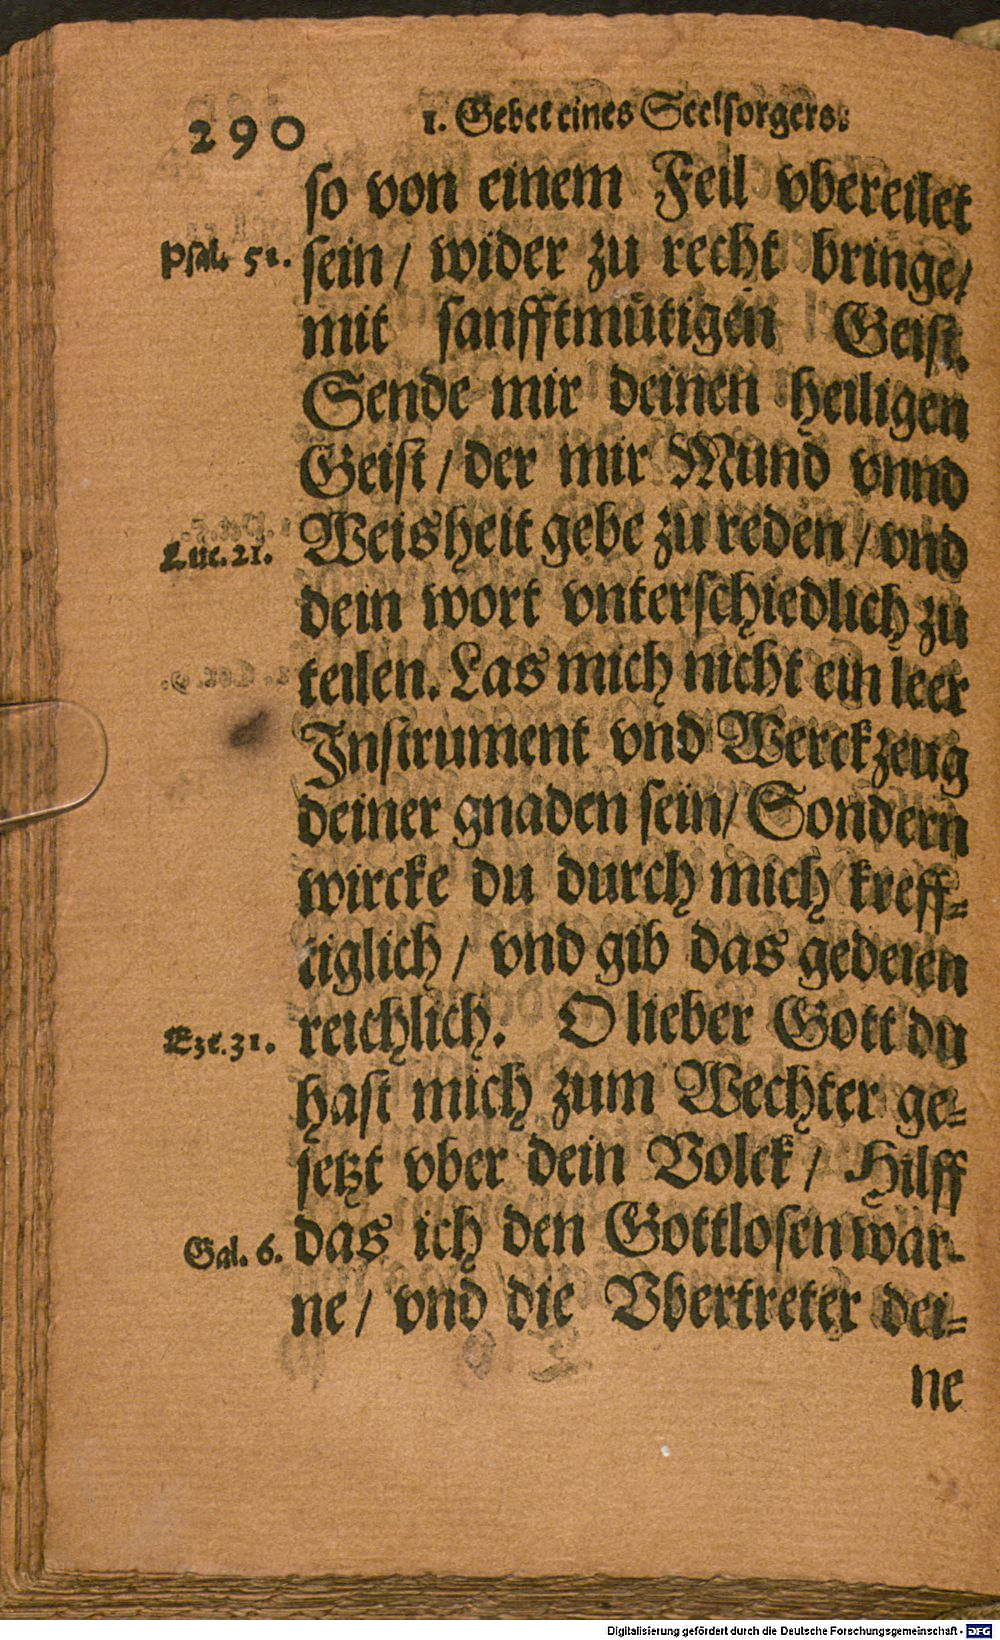 290
1. Gebet eines Seelsorgers.
so von einem Feil vbereilet
Psal. 51.
sein / wider zu recht bringe /
mit sanfftmütigen Geist.
Sende mir deinen heiligen
Geist / der mir Mund vnnd
Luc. 21.
Weisheit gebe zu reden / vnd
dein wort vnterschiedlich zu
teilen. Las mich nicht ein leer
Instrument vnd Werckzeug
deiner gnaden sein / Sondern
wircke du durch mich kreff-
tiglich / vnd gib das gedeien
Eze. 31.
reichlich. O lieber Gott du
hast mich zum Wechter ge-
setzt vber dein Volck / Hilff
Gal. 6.
das ich den Gottlosen war-
ne / vnd die Vbertreter dei-
ne
Digitalisierung gefördert durch die Deutsche Forschungsgemeinschaft - DFG